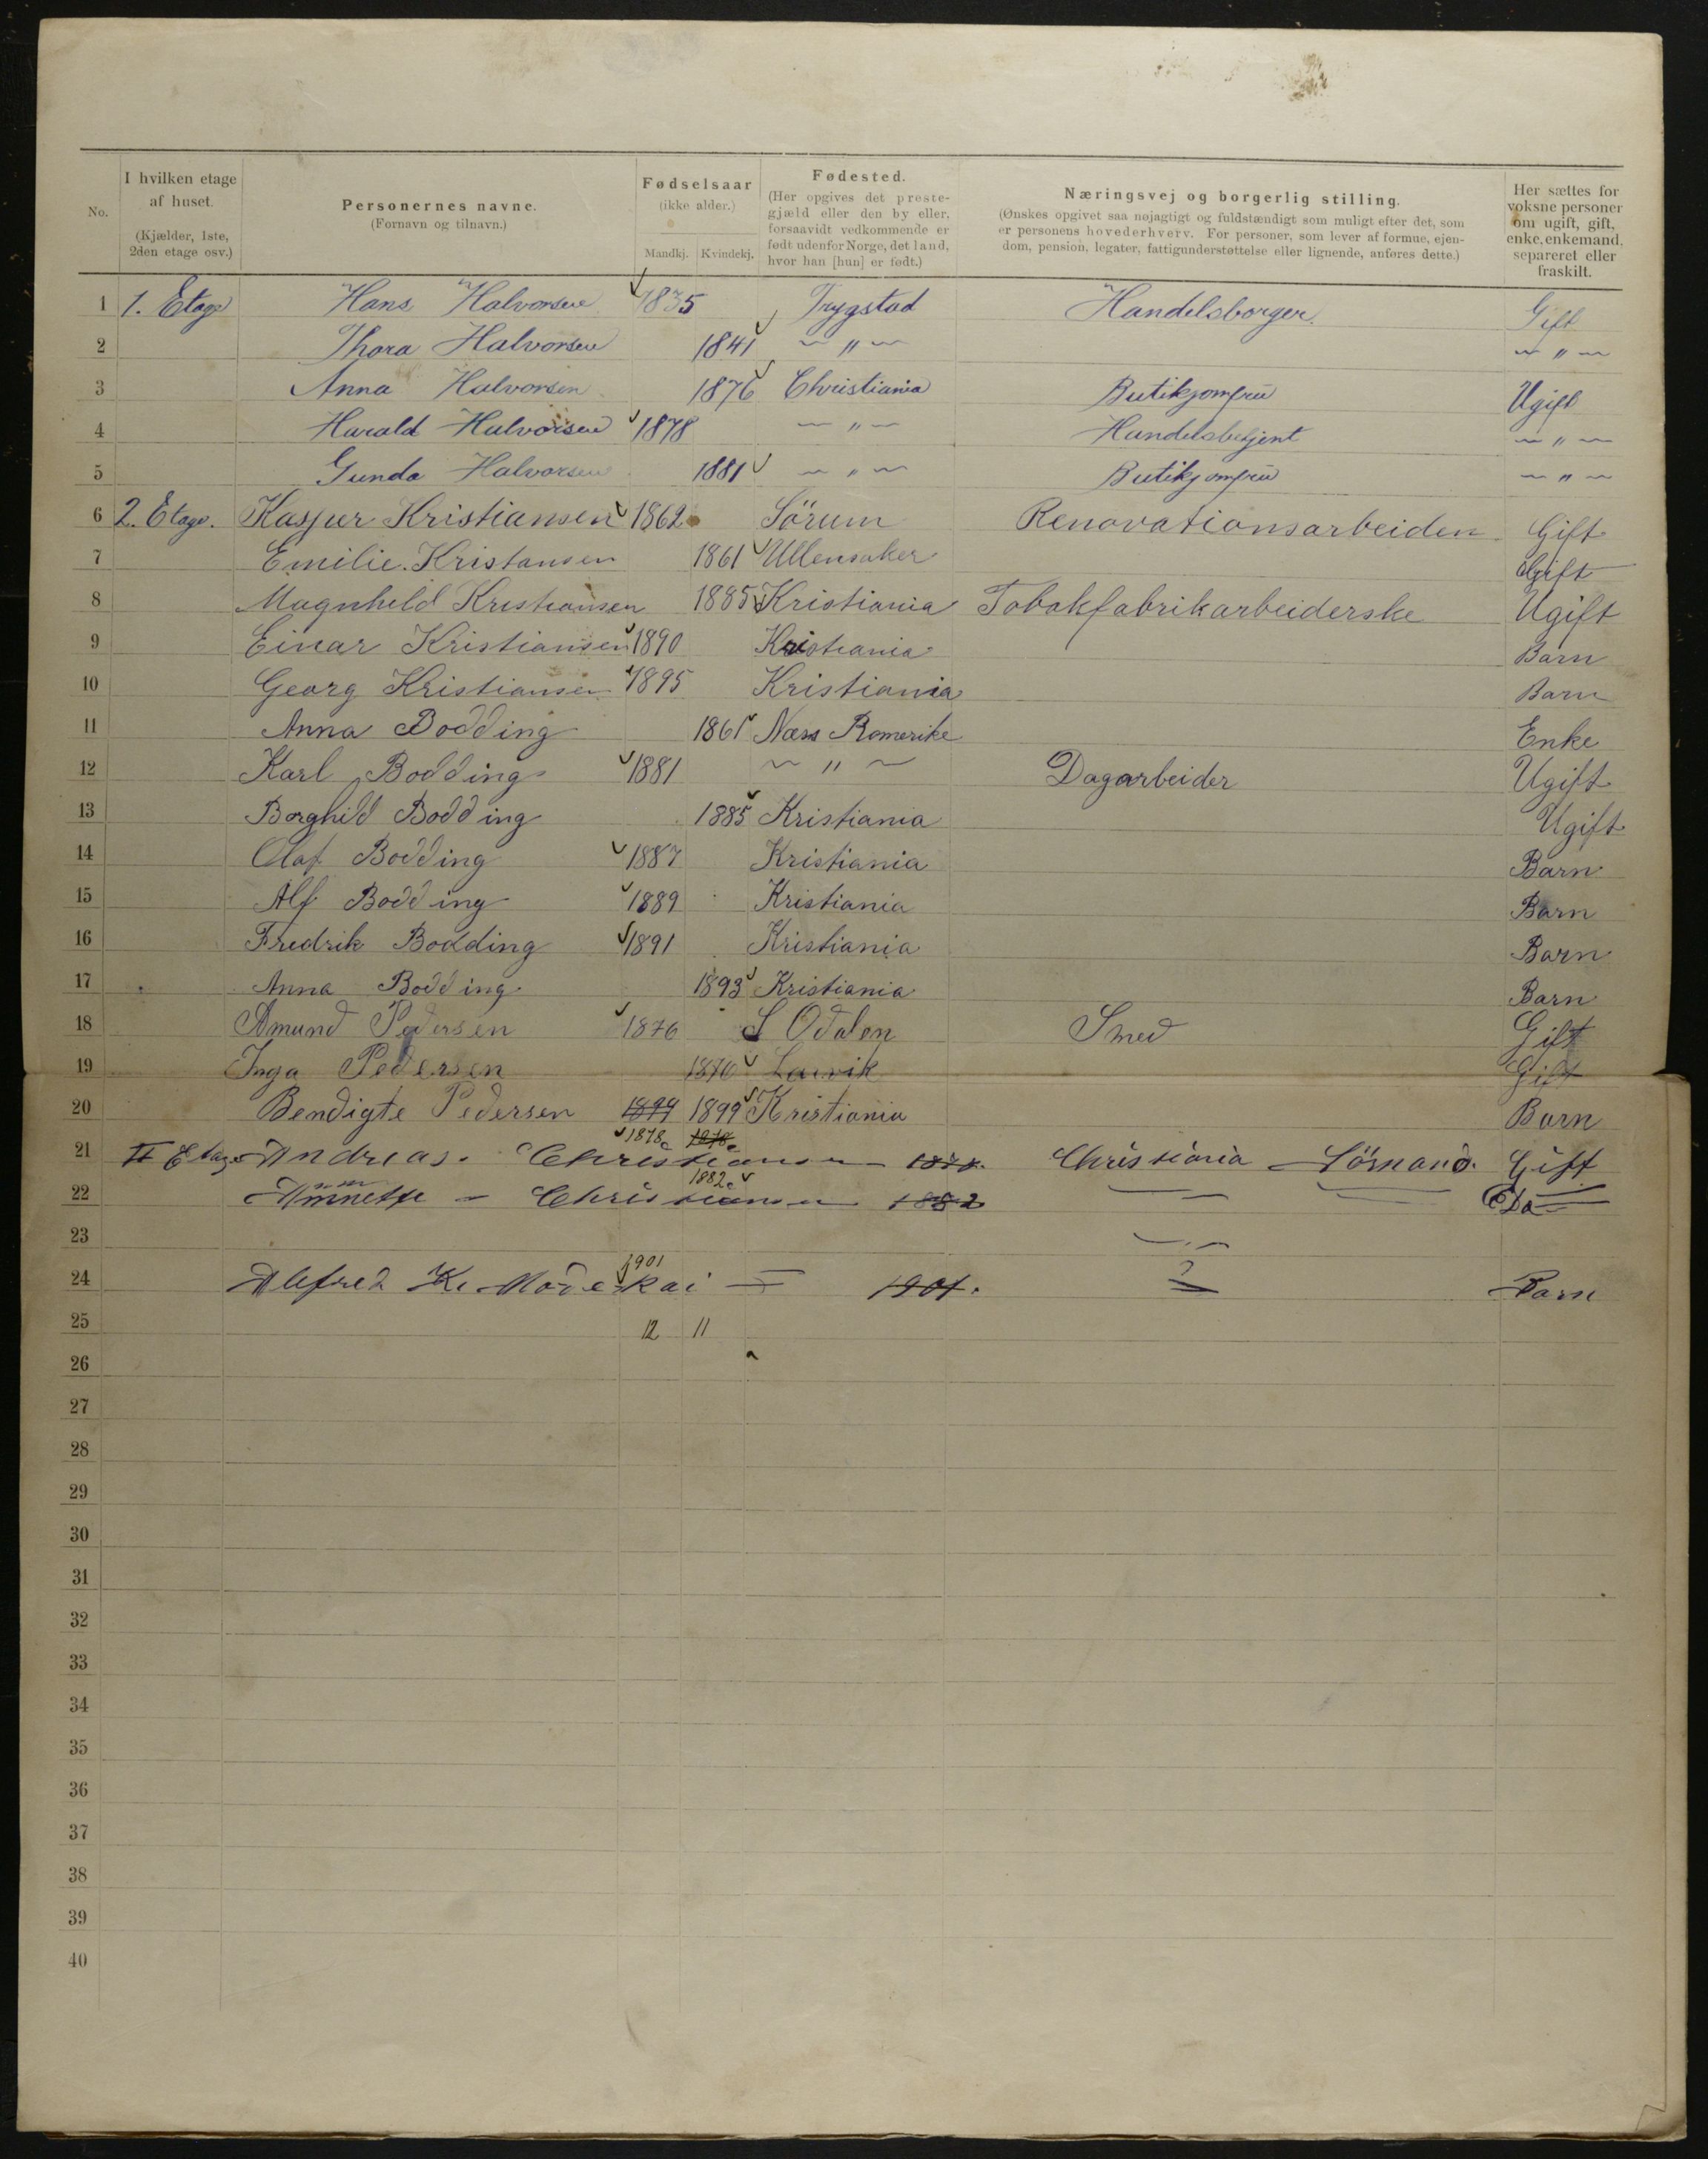 No.
I hvilken etage af huset. (Kjælder, 1ste, 2den etage osv.)
Personernes navne. (Fornavn og tilnavn.)
Fødselsaar (ikke alder.) Mandkj. Kvindekj.
Fødested. (Her opgives det prestegjæld eller den by eller, forsaavidt vedkommende er født udenfor Norge, det land, hvor han [hun] er født.)
Næringsvej og borgerlig stilling. (Ønskes opgivet saa nøjagtigt og fuldstændigt som muligt efter det, som er personens hovederhverv. For personer, som lever af formue, ejendom, pension, legater, fattigunderstøttelse eller lignende, anføres dette.)
Her sættes for voksne personer om ugift, gift, enke, enkemand, separeret eller fraskilt.
1 1. Etage Hans Halvorsen 1835 Trygstad Handelsborger. Gift
2 Thora Halvorsen 1841 — " — — " —
3 Anna Halvorsen 1876 Christiania Butikjomfru Ugift
4 Harald Halvorsen 1878 — " — Handelsbetjent — " —
5 Gunda Halvorsen 1881 — " — Butikjomfru — " —
6 2. Etage. Kasper Kristiansen 1862 Sörum Renovationsarbeider Gift
7 Emilie. Kristansen 1861 Ullensaker Gift
8 Magnhild Kristiansen 1885 Kristiania Tobakfabrikarbeiderske Ugift
9 Einar Kristiansen 1890 Kristiania Barn
10 Georg Kristiansen 1895 Kristiania Barn
11 Anna Bodding 1861 Næss Romerike Enke
12 Karl Bodding 1881 — " — Dagarbeider Ugift
13 Borghild Bodding 1885 Kristiania Ugift
14 Olaf Bodding 1887 Kristiania Barn
15 Alf Bodding 1889 Kristiania Barn
16 Fredrik Bodding 1891 Kristiania Barn
17 Anna Bodding 1893 Kristiania Barn
18 Amund Pedersen 1876 S Odalen Smed Gift
19 Inga Pedersen 1876 Laurvik Gift
20 Bendigte Pedersen 1899 1899 Kristiania Barn
21 II Etage Andreas. Christiansen 1878 1878 1878. Christiania Sömand. Gift
22 Annette Christiansen 1882 1882 Do
23
24 Alfred 1901 1901. ? Barn
25 12 11
26
27
28
29
30
31
32
33
34
35
36
37
38
39
40